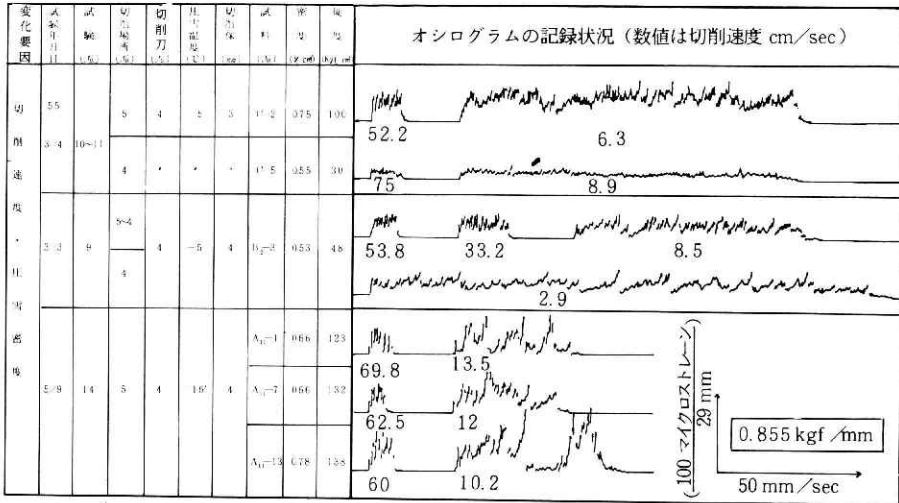 変化要因
試験年月日
試験
(No)
切削場所
(No)
切削刀
(No)
圧雪温度
(℃)
切削深
(mm)
試料
(No)
密度
硬度
オシログラムの記録状況（数値は切削速度 cm/sec）
切削速度・圧雪密度
55
3/4
10~11
5
4
5
3
0.75
100
52.2
6.3
4
0.55
30
75
8.9
3/3
9
5~4
4
4
-5
4
B₂-3
0.53
48
53.8
33.2
8.5
2.9
5/9
14
5
4
4
A₁₁-1
0.66
123
69.8
13.5
A₁₁-7
0.66
132
62.5
12
A₁₁-13
0.78
138
60
10.2
(100 マイクロストレーン)
29 mm
0.855 kgf/mm
50 mm/sec